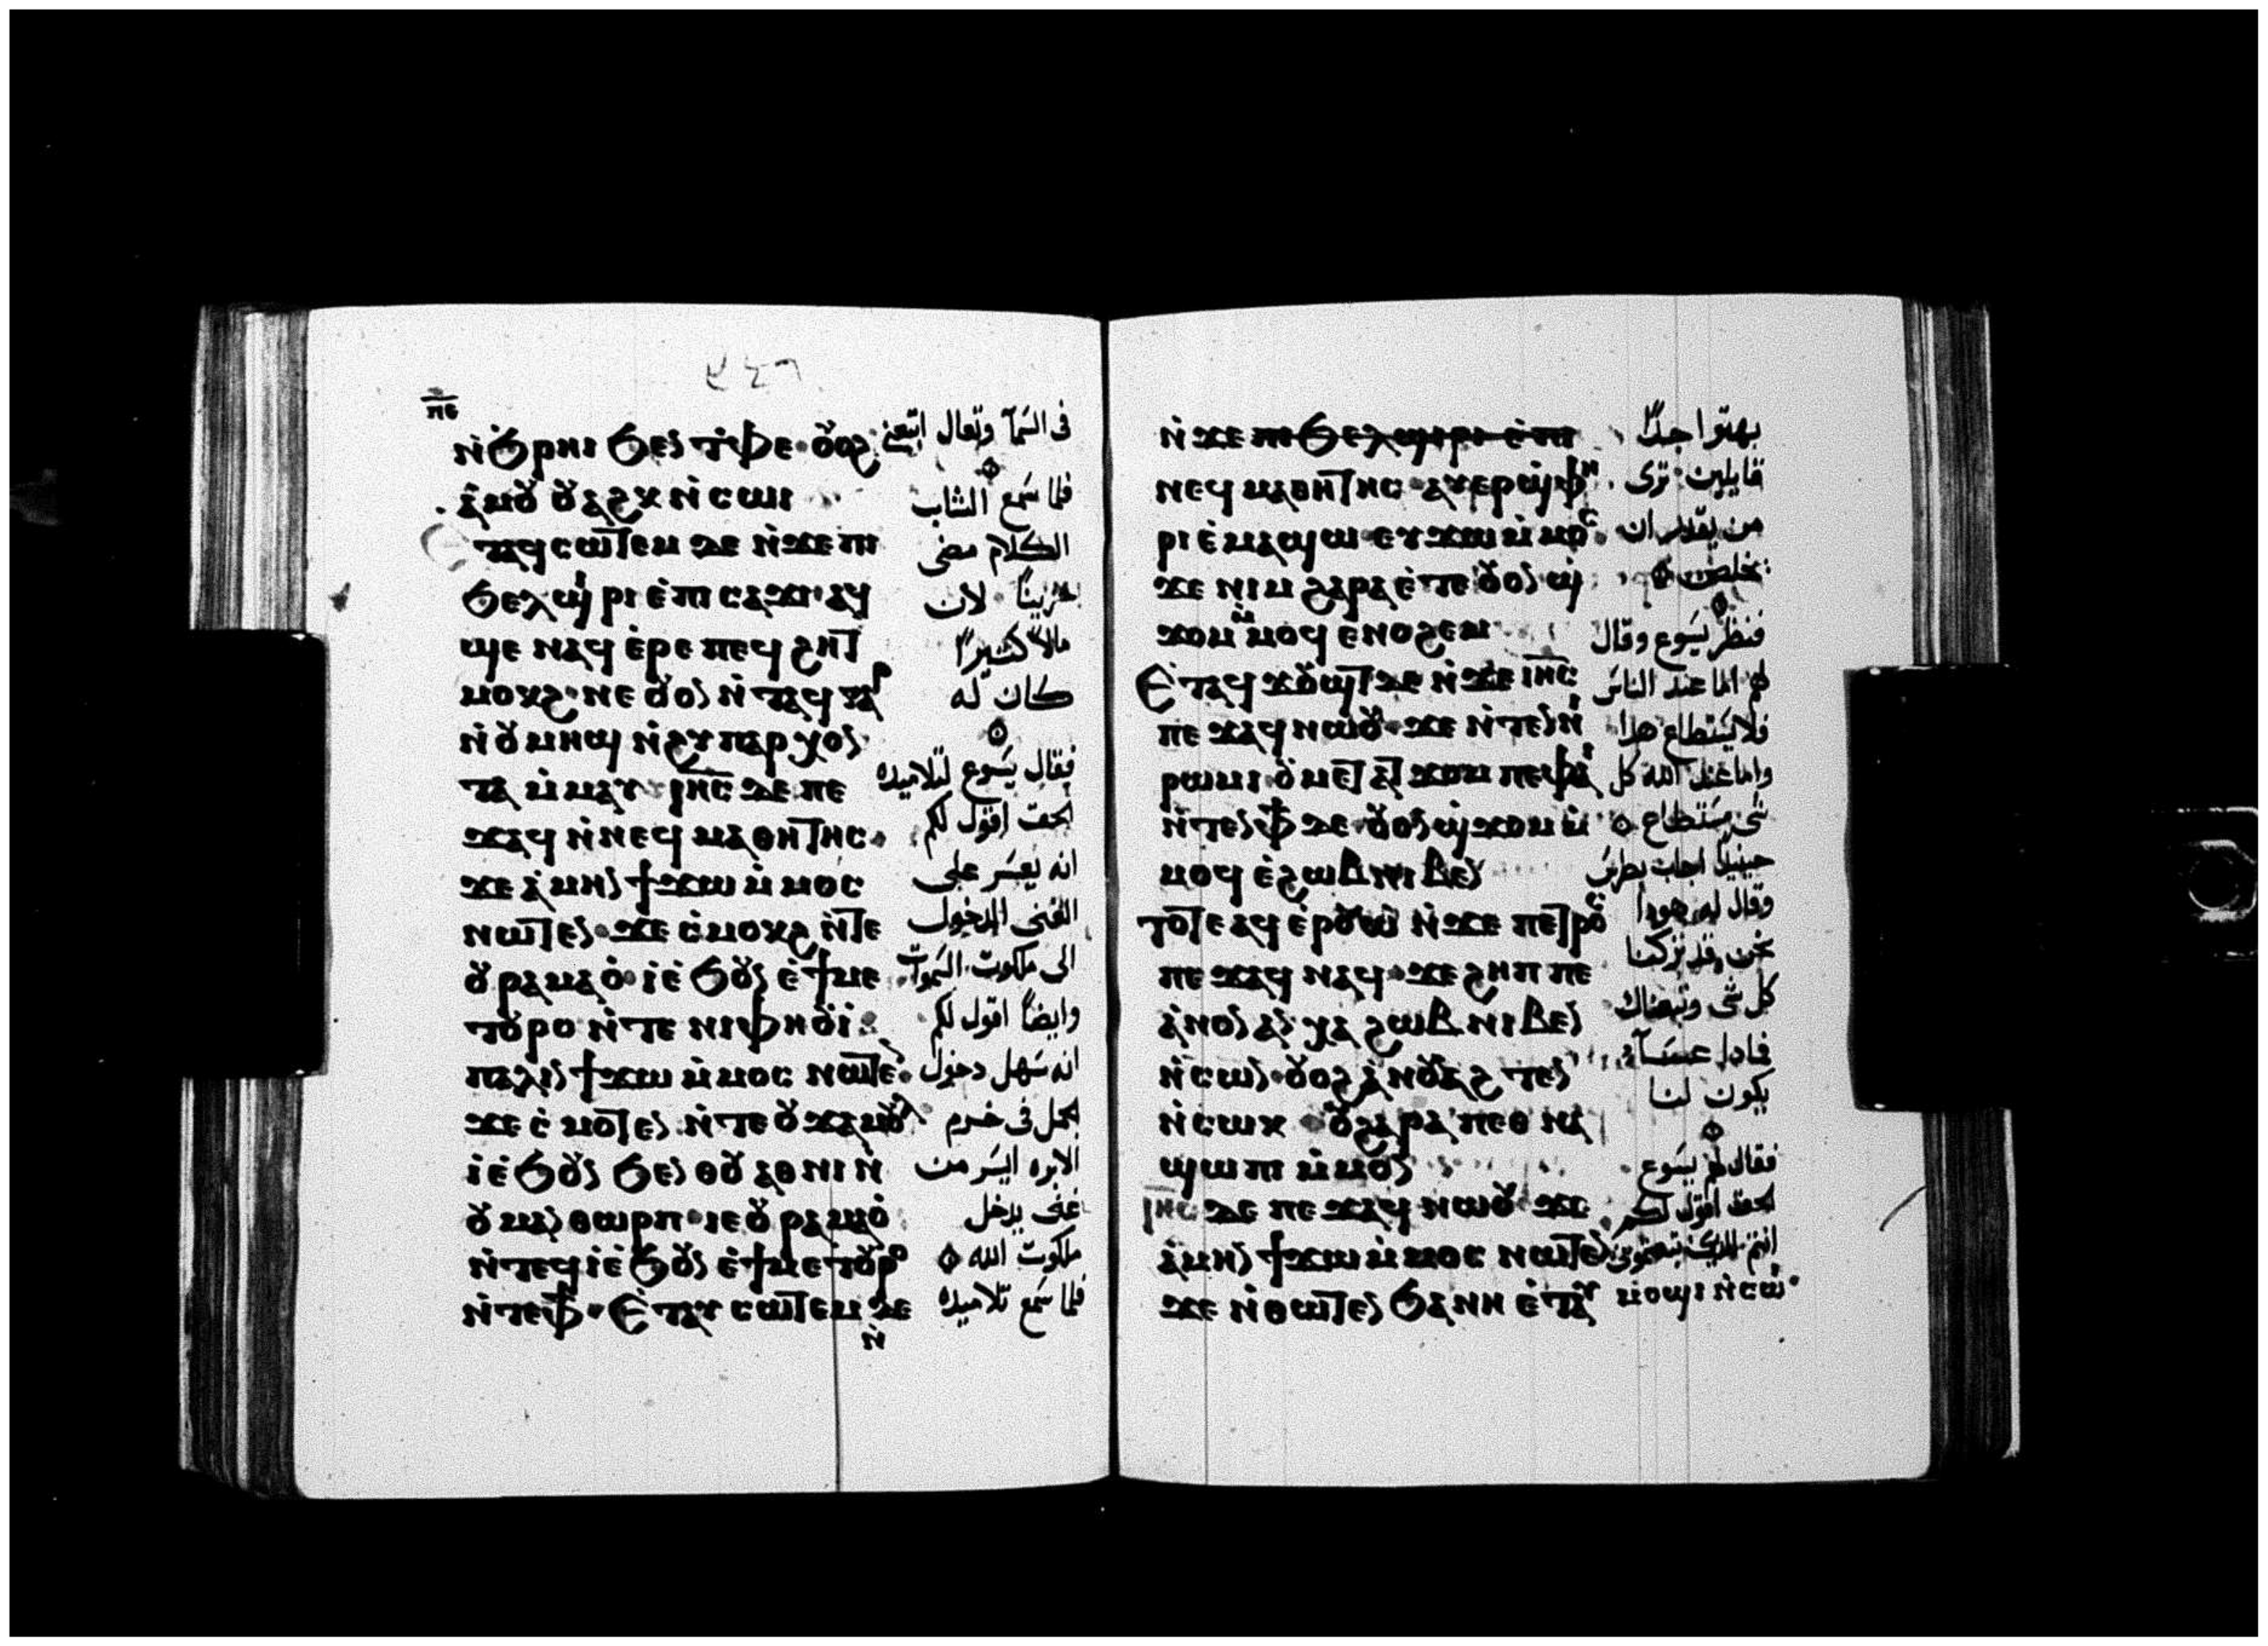 ⲡⲉ
ⲛ̀ϧⲣⲏⲓ ϧⲉⲛ ⲧ̀ⲫⲉ ⲟⲩⲟϩ
ⲁ̀ⲙⲟⲩ ⲟⲩⲁϩⲕ ⲛ̀ⲥⲱⲓ
ⲧⲁϥⲥⲱⲧⲉⲙ ⲇⲉ ⲛ̀ϫⲉ ⲡⲓ
ϧⲉⲗϣⲓⲣⲓ ⲉ̀ⲡⲓ ⲥⲁϫⲓ ⲁϥ
ϣⲉ ⲛⲁϥ ⲉ̀ⲣⲉ ⲡⲉϥ ϩⲏⲧ
ⲙⲟⲕϩ ⲛⲉ ⲟⲩⲟⲛ ⲛ̀ⲧⲁϥ ⲅⲁⲣ
ⲛ̀ⲟⲩⲙⲏϣ ⲛ̀ϩⲩⲡⲁⲣⲭⲟⲛ
ⲧⲁ ⲙ̀ⲙⲁⲩ ⲓⲏⲥ ⲇⲉ ⲡⲉ
ϫⲁϥ ⲛ̀ⲛⲉϥ ⲙⲁⲑⲏⲧⲏⲥ
ϫⲉ ⲁ̀ⲙⲏⲛ ϯϫⲱ ⲙ̀ⲙⲟⲥ
ⲛⲱⲧⲉⲛ ϫⲉ ⲥ̀ⲙⲟⲕϩ ⲛ̀ⲧⲉ
ⲟⲩⲣⲁⲙⲁⲟ̀ ⲓ̀ⲉ̀ϧⲟⲩⲛ ⲉ̀ϯⲙⲉ
ⲧⲟⲩⲣⲟ ⲛ̀ⲧⲉ ⲛⲓⲫⲏⲟⲩⲓ̀
ⲡⲁⲗⲓⲛ ϯϫⲱ ⲙ̀ⲙⲟⲥ ⲛⲱⲧⲉⲛ
ϫⲉ ⲥ̀ⲙⲟⲧⲉⲛ ⲛ̀ⲧⲉ ⲟⲩϫⲁⲙⲟⲩⲗ
ⲓ̀ⲉ̀ϧⲟⲩⲛ ϧⲉⲛ ⲑⲟⲩⲁⲑⲛⲓ ⲛ̀
ⲟⲩⲙⲁⲛⲑⲱⲣⲡ ⲓⲉ ⲟⲩⲣⲁⲙⲁⲟ̀
ⲛ̀ⲧⲉϥ ⲓ̀ⲉ̀ϧⲟⲩⲛ ⲉ̀ϯⲙⲉⲧⲟⲩⲣⲟ
ⲛ̀ⲧⲉⲫϯ ⲉ̀ⲧⲁⲩ ⲥⲱⲧⲉⲙ ⲇⲉ
ⲛ̀
فى السمآ وتعال اتبعنى
فلما سمع الشاب
الكلام مضى
حزينًا لان
مالاً كثيرًا
كان له
فقال يسوع لتلاميذه
الحق اقول لكم
انه يعسر على
الغنى الدخول
الى ملكوت السموات
وايضًا اقول لكم
انه سهل دخول
الجمل فى خرم
الابره ايسر من
غنى يدخل
ملكوت الله
فلما سمع تلاميذه
ⲛ̀ϫⲉ ⲡⲓϧⲉⲗϣⲓⲣⲓ ⲉ̀ⲡⲓ
ⲛⲉϥ ⲙⲁⲑⲏⲧⲏⲥ ⲁⲩⲉⲣϣ̀ⲫⲏ
ⲣⲓ ⲉ̀ⲙⲁϣⲱ ⲉⲩϫⲱ ⲙ̀ⲙⲟⲥ
ϫⲉ ⲛⲓⲙ ϩⲁⲣⲁ ⲉ̀ⲧⲉ ⲟⲩⲟⲛ ϣ̀
ϫⲟⲙ ⲙ̀ⲙⲟϥ ⲉⲛⲟϩⲉⲙ
ⲉ̀ⲧⲁϥ ϫⲟⲩϣⲧ ⲇⲉ ⲛ̀ϫⲉ ⲓⲏⲥ
ⲡⲉ ϫⲁϥ ⲛⲱⲟⲩ ϫⲉ ⲛ̀ⲧⲉⲛ ⲛⲓ
ⲣⲱⲙⲓ ⲟⲩⲙⲉⲧⲁⲧϫⲟⲙ ⲡⲉ ⲫⲁⲓ
ⲛ̀ⲧⲉⲛ ⲫϯ ⲇⲉ ⲟⲩⲟⲛ ϣ̀ϫⲟⲙ ⲙ̀
ⲙⲟϥ ⲉ̀ϩⲱⲃ ⲛⲓⲃⲉⲛ
ⲧⲟⲧⲉ ⲁϥ ⲉ̀ⲣⲟⲩⲱ̀ ⲛ̀ϫⲉ ⲡⲉⲧⲣⲟⲥ
ⲡⲉ ϫⲁϥ ⲛⲁϥ ϫⲉ ϩⲏⲡⲡⲉ
ⲁ̀ⲛⲟⲛ ⲁⲛ ⲭⲁ ϩⲱⲃ ⲛⲓⲃⲉⲛ
ⲛ̀ⲥⲱⲛ ⲟⲩⲟϩ ⲁ̀ⲛⲟⲩⲁϩ ⲧⲉⲛ
ⲛ̀ⲥⲱⲕ ⲟⲩϩⲁⲣⲁ ⲡⲉⲑ ⲛⲁ
ϣⲱⲡⲓ ⲙ̀ⲙⲟⲛ
ⲓⲏⲥ ⲇⲉ ⲡⲉ ϫⲁϥ ⲛⲱⲟⲩ ϫⲉ
ⲁ̀ⲙⲏⲛ ϯϫⲱ ⲙ̀ⲙⲟⲥ ⲛⲱⲧⲉⲛ
ϫⲉ ⲛ̀ⲑⲱⲧⲉⲛ ϧⲁ ⲛⲏ ⲉ̀ⲧⲁⲩ
ⲙⲟϣⲓ ⲛ̀ⲥⲱⲓ
بهتوا جدًا
قايلين ترى
من يقدر ان
يخلص
فنظر يسوع وقال
لهم اما عند الناس
فلا يستطاع هذا
واما عند الله كل
شى مستطاع
حينيذ اجاب بطرس
وقال له هوذا
نحن قد تركنا
كل شى وتبعناك
فاذا عسآ
يكون لنا
فقال لهم يسوع
الحق اقول لكم
انتم الذين تبعتمونى